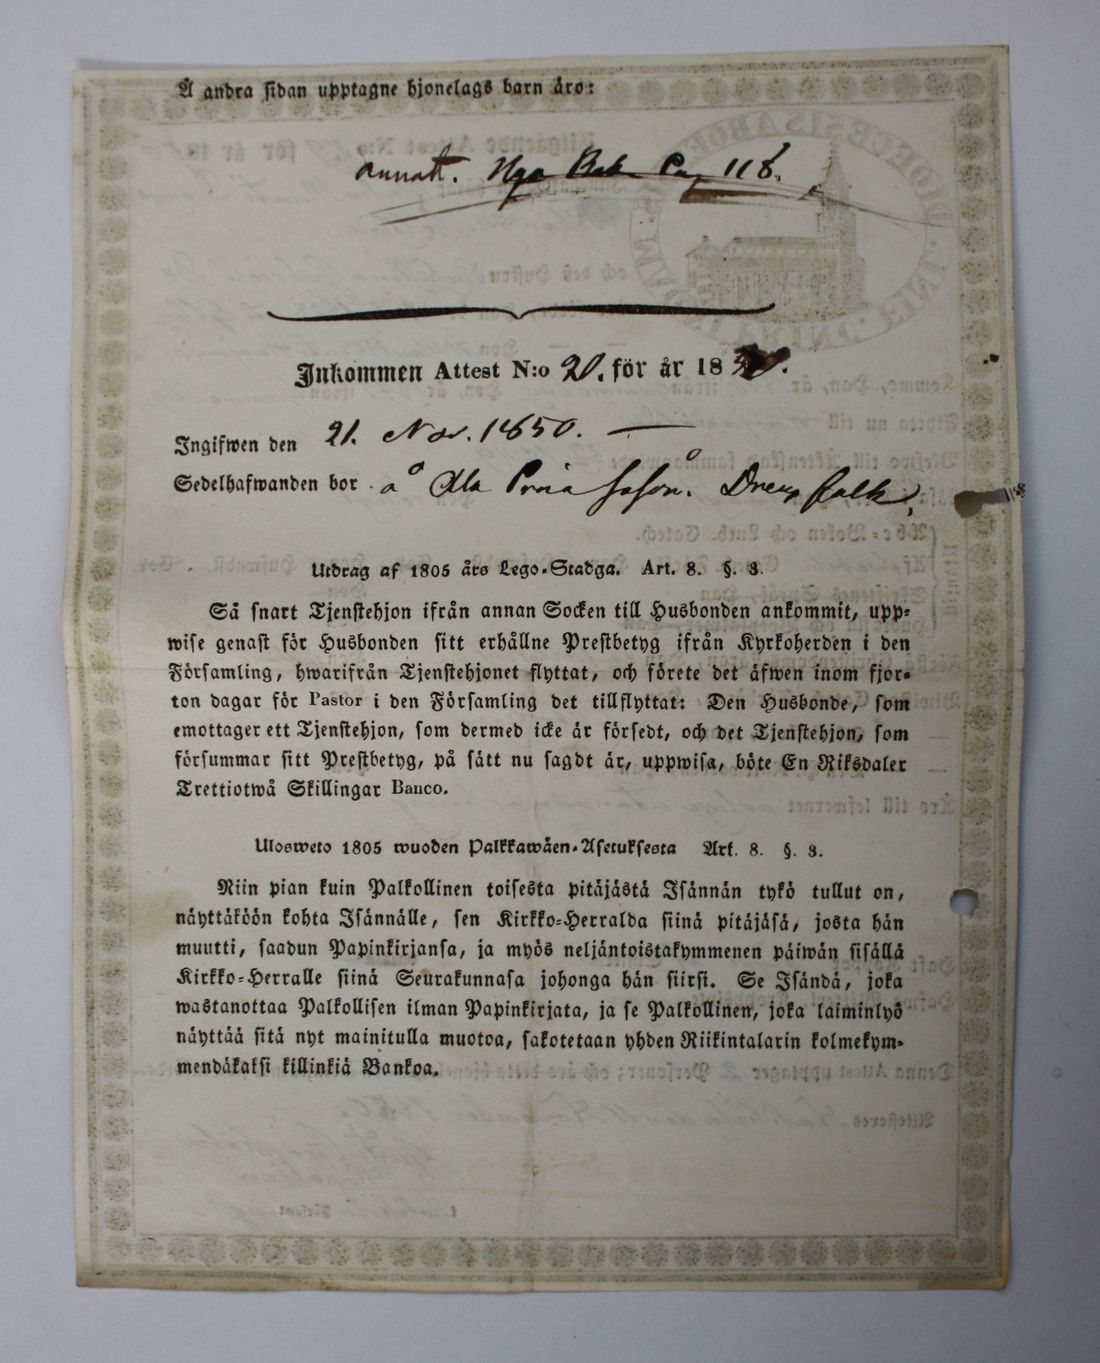 Å andra sidan upptagne hjonelags barn äro:
annott. Nya Bok. Pag 118.
Inkommen Attest N:o 20. för år 18
Ingifwen den 21. Nov. 1850. —
Sedelhafwanden bor å
Utdrag af 1805 års Lego-Stadga. Art. 8. §. 3.
Så snart Tjenstehjon ifrån annan Socken till Husbonden ankommit, upp-
wise genast för Husbonden sitt erhållne Prestbetyg ifrån Kyrkoherden i den
Församling, hwarifrån Tjenstehjonet flyttat, och förete det äfwen inom fjor-
ton dagar för Pastor i den Församling det tillflyttat: Den Husbonde, som
emottager ett Tjenstehjon, som dermed icke är försedt, och det Tjenstehjon, som
försummar sitt Prestbetyg, på sätt nu sagdt är, uppwisa, böte En Riksdaler
Trettiotwå Skillingar Banco.
Ulosweto 1805 wuoden Palkkawäen-Asetuksesta Art. 8. §. 3.
Niin pian kuin Palkollinen toisesta pitäjästä Isännän tykö tullut on,
näyttäköön kohta Isännälle, sen Kirkko-Herralda siinä pitäjäsä, josta hän
muutti, saadun Papinkirjansa, ja myös neljäntoistakymmenen päiwän sisällä
Kirkko-Herralle siinä Seurakunnasa johonga hän siirsi. Se Isändä, joka
wastanottaa Palkollisen ilman Papinkirjata, ja se Palkollinen, joka laiminlyö
näyttää sitä nyt mainitulla muotoa, sakotetaan yhden Riikintalarin kolmekym-
mendäkaksi killinkiä Bankoa.